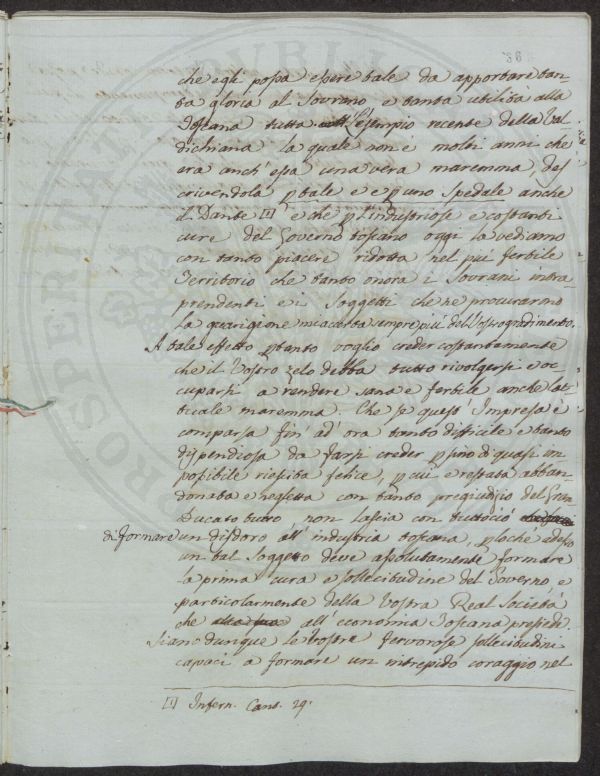 che egli possa essere tale da apportare tan-
ta gloria al Sovrano e tanta utilità alla
Toscana tutta L'esempio recente della Val
dichiana la quale non è molti anni che
era anch'essa una vera maremma, des
crivendola p tale e e p uno Spedale anche
il Dante [1] e che p l'industriose e costanti
cure del Governo toscano oggi la vediamo
con tanto piacere ridotta nel piu fertile
Territorio che tanto onora i Sovrani intra-
prendenti e i Soggetti che ne procurarono
la guarigione mi accerta sempre più del Vostro gradimento.
A tale effetto p tanto voglio creder costantemente
che il Vostro zelo debba tutto rivolgersi e oc-
cuparsi a rendere sana e fertile anche l'at-
tuale maremma. Che se quest' Impresa è
comparsa fin' ad' ora tanto difficile e tanto
dispendiosa da farsi creder p fino di quasi im
possibile riescita felice, p cui e restata abban-
donata e negletta con tanto pregiudizio del Gran
Ducato tutto, non lascia con tuttociò
di formare un disdoro all' industria toscana, p loche adesso
un tal Soggetto deve assolutamente formare
la prima cura e sollecitudine del Governo e
particolarmente della Vostra Real Società
che all' economia Toscana presiede
Siano dunque le Vostre fervorose sollecitudini
capaci a formare un intrepido coraggio nel
[1] Infern. Cant. 29.